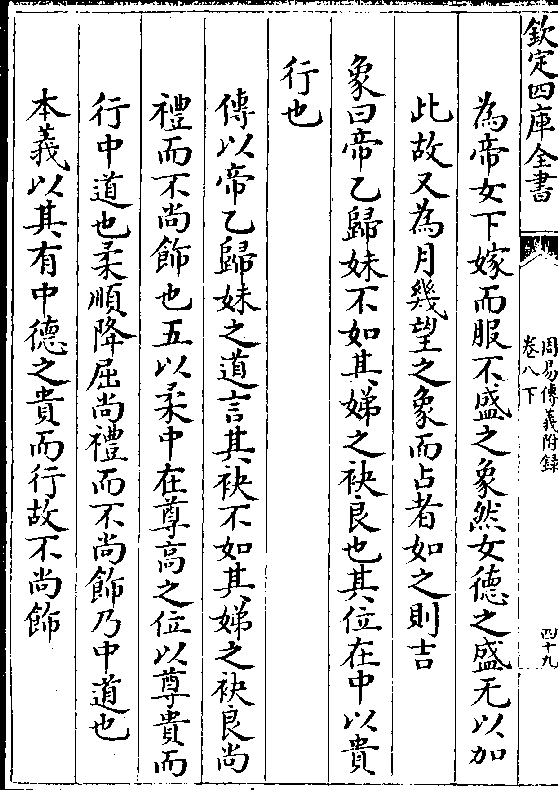 欽定四庫全書
周易傳義附録
卷八下
四十九
為帝女下嫁而服不盛之象然女德之盛无以加
此故又為月幾望之象而占者如之則吉
象曰帝乙歸妹不如其娣之袂良也其位在中以貴
行也
傳以帝乙歸妹之道言其袂不如其娣之袂良尚
禮而不尚飾也五以柔中在尊高之位以尊貴而
行中道也柔順降屈尚禮而不尚飾乃中道也
本義以其有中德之貴而行故不尚飾